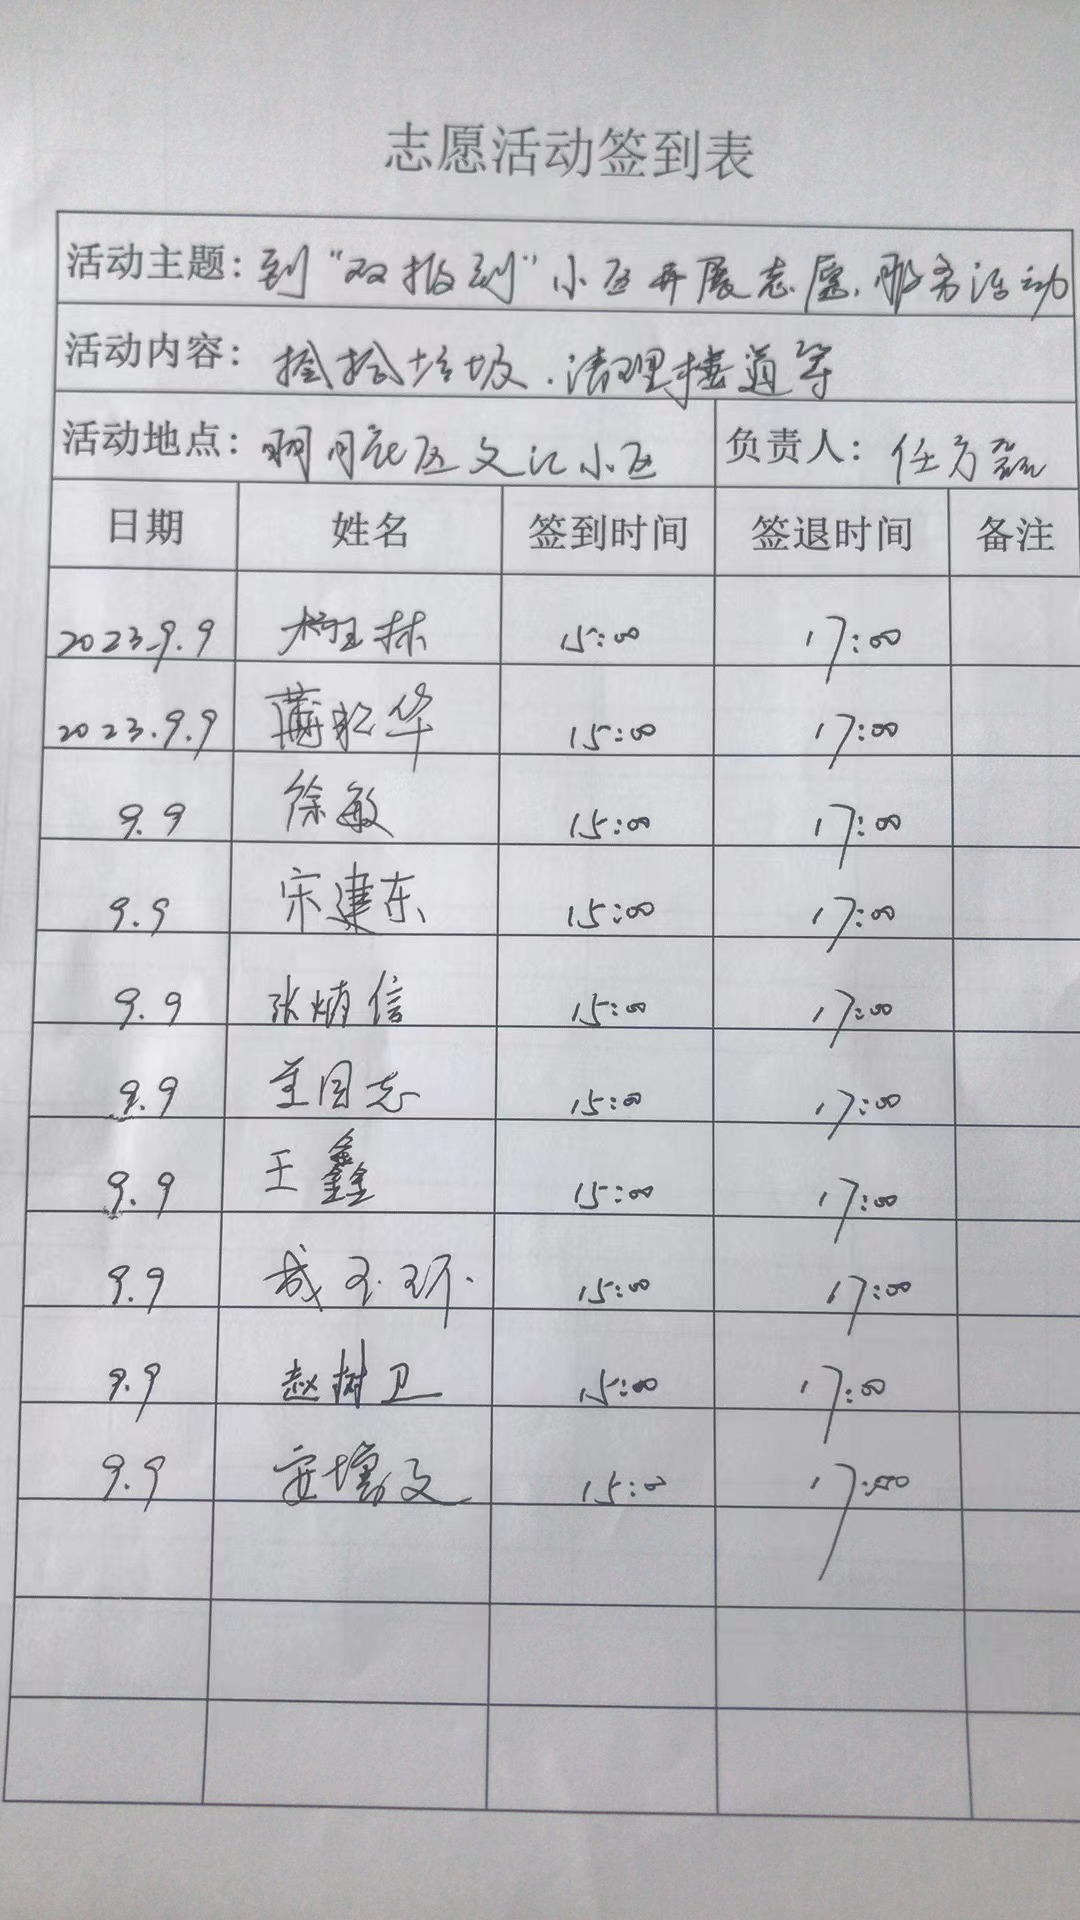 志愿活动签到表
活动主题：到"双报到"小区开展志愿服务活动
活动内容：捡拾垃圾、清理楼道等
活动地点：明月社区文汇小区 负责人：任方磊
日期 姓名 签到时间 签退时间 备注
2023.9.9 林 15:00 17:00
2023.9.9 蒲松华 15:00 17:00
9.9 徐敏 15:00 17:00
9.9 宋建东 15:00 17:00
9.9 张炳信 15:00 17:00
9.9 国志 15:00 17:00
9.9 王鑫 15:00 17:00
9.9 成玉环 15:00 17:00
9.9 赵树卫 15:00 17:00
9.9 安增文 15:00 17:00